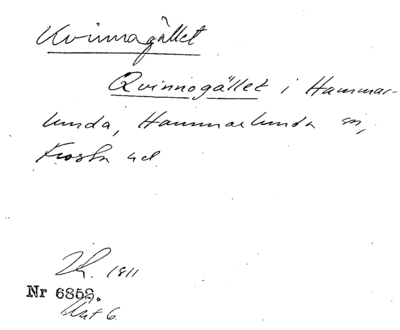 Kvinnagället
Qvinnogället i Hammar-
lunda, Hammarlunda sn,
Frosta hd
1811
Nr 6852.
Akt 6.